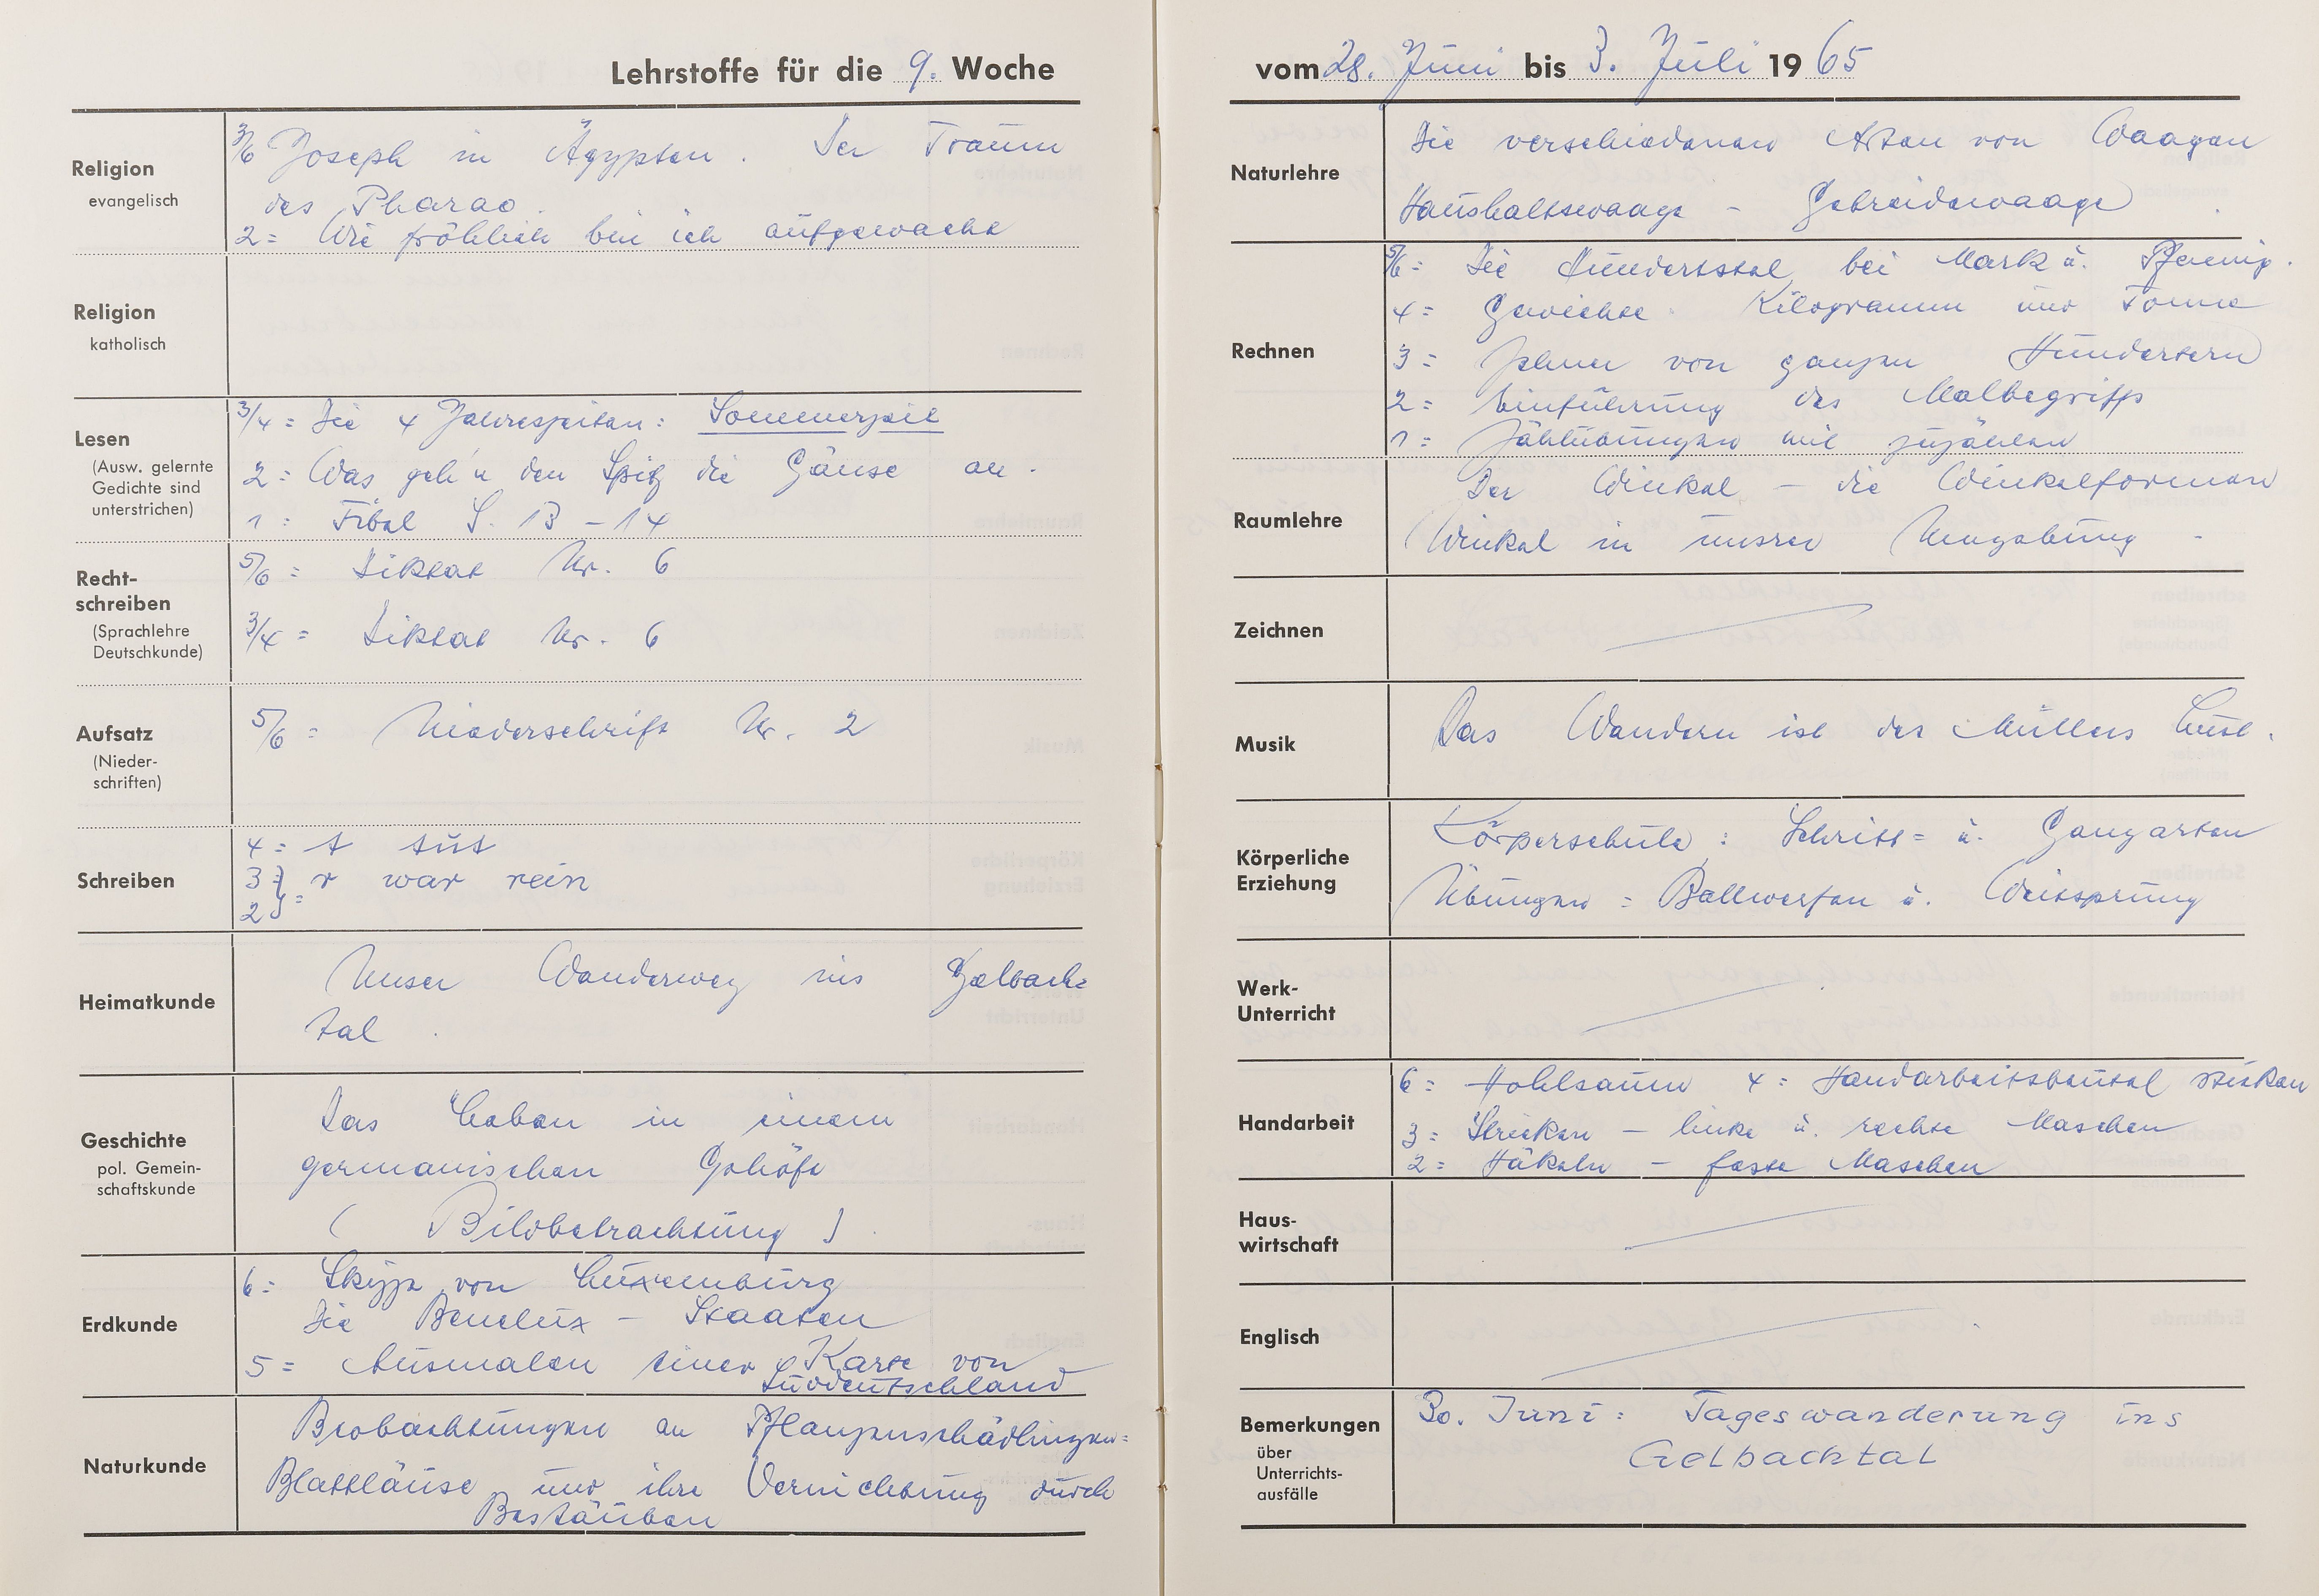 Lehrstoffe für die 9. Woche
Religion
evangelisch
3/6 Joseph in Ägypten. Der Traum
des Pharao.
2= Wie fröhlich bin ich aufgewacht
Religion
katholisch
Lesen
(Ausw. gelernte
Gedichte sind
unterstrichen)
3/4 = Die 4 Jahreszeiten: Sommerzeit
2 = Was geh'n den Spitz die Gänse an.
1 = Fibel S. 13 - 14
Recht-
schreiben
(Sprachlehre
Deutschkunde)
5/6 = Diktat Nr. 6
3/4 = Diktat Nr. 6
Aufsatz
(Nieder-
schriften)
5/6 = Niederschrift Nr. 2
Schreiben
4 = t tut
3 } r war rein
2 } =
Heimatkunde
Unser Wanderweg ins Gelbach-
tal.
Geschichte
pol. Gemein-
schaftskunde
Das Leben in einem
germanischen Gehöft
( Bildbetrachtung ).
Erdkunde
6 = Skizze von Luxemburg
Die Benelux - Staaten
5 = Ausmalen einer Karte von
Süddeutschland
Naturkunde
Beobachtungen an Pflanzenschädlingen =
Blattläuse und ihre Vernichtung durch
Bestäuben
vom 28. Juni bis 3. Juli 1965
Naturlehre
Die verschiedenen Arten von Waagen
Haushaltswaage - Getreidewaage
Rechnen
5/6 = Die Hundertstel bei Mark u. Pfennig.
4 = Gewichte. Kilogramm und Tonne
3 = Zehner von ganzen Hundertern
2 = Einführung des Malbegriffs
1 = Zählübungen mit zuzählen
Raumlehre
Der Winkel - die Winkelformen
Winkel in unsrer Umgebung -
Zeichnen
Musik
Das Wandern ist des Müllers Lust.
Körperliche
Erziehung
Körperschule: Schritt= u. Gangarten
Übungen = Ballwerfen u. Weitsprung
Werk-
Unterricht
Handarbeit
6 = Hohlsaum 4 = Handarbeitsbeutel sticken
3 = Stricken - linke u. rechte Maschen
2 = Häkeln - feste Maschen
Haus-
wirtschaft
Englisch
Bemerkungen
über
Unterrichts-
ausfälle
30. Juni: Tageswanderung ins
Gelbachtal